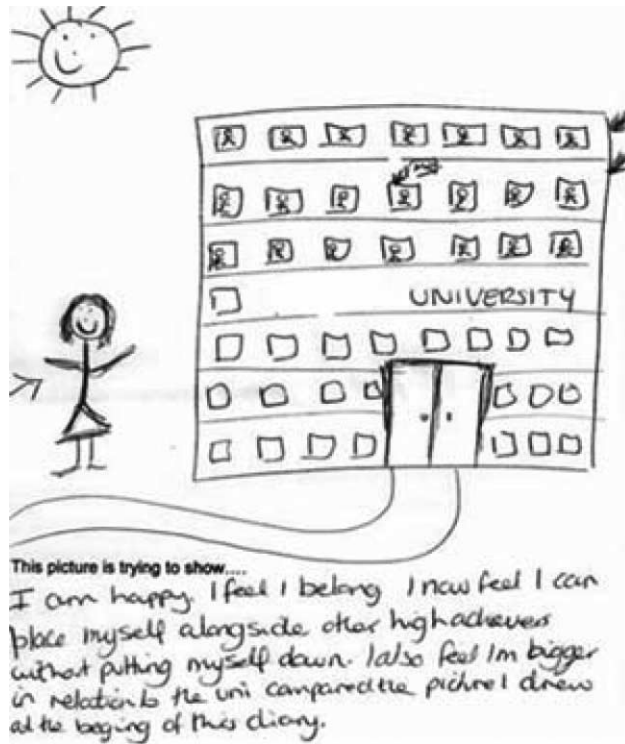 UNIVERSITY
This picture is trying to show....
I am happy. I feel I belong I now feel I can
place myself alongside other high achievers
without putting myself down. I also feel I'm bigger
in relation to the uni compared the picture I drew
at the beging of this diary.